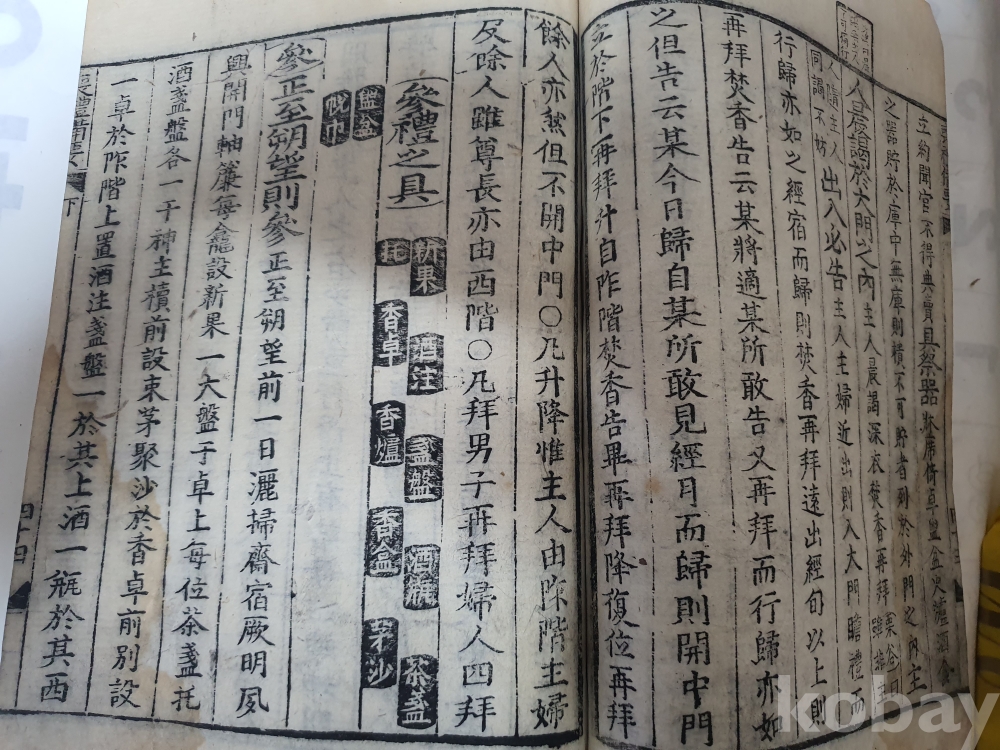 立約聞官不得典賣具祭器牀席倚卓盥盆火爐酒食
之器貯於庫中無庫則積不可貯者列於外門之內主
人晨謁於大門之內主人晨謁深衣焚香再拜栗谷曰雖非
人隨主人同謁不妨出入必告主人主婦近出則入大門瞻禮而
行歸亦如之經宿而歸則焚香再拜遠出經旬以上則
再拜焚香告云某將適某所敢告又再拜而行歸亦如
之但告云某今日歸自某所敢見經月而歸則開中門
立於階下再拜升自阼階焚香告畢再拜降復位再拜
餘人亦然但不開中門○凡升降惟主人由阼階主婦
及餘人雖尊長亦由西階○凡拜男子再拜婦人四拜
參禮之具 新果 酒注 盞盤 酒瓶 茶盞
托 香卓 香爐 香盒 茅沙
盥盆 帨巾
參正至朔望則參正至朔望前一日灑掃齋宿厥明夙
興開門軸簾每龕設新果一大盤于卓上每位茶盞托
酒盞盤各一于神主櫝前設束茅聚沙於香卓前別設
一卓於阼階上置酒注盞盤一於其上酒一甁於其西
喪禮備要 下 四十四
kobay